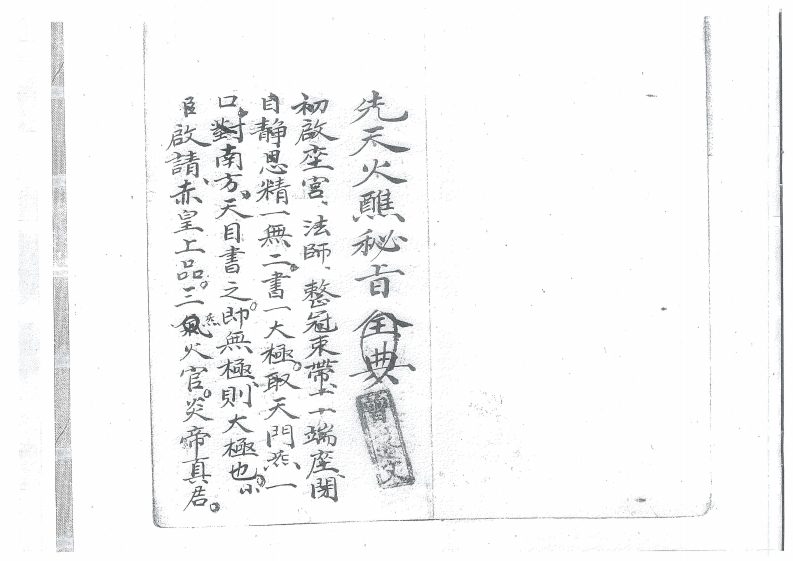 先天火醮秘旨全典
初啟座宮、法師、整冠束帶、一一端座、閉
目靜思精一無二。書一大極。取天門炁、一
口、對南方。天目書之。即無極則大極也。
臣啟請、赤皇上品。三炁火官。炎帝真君。